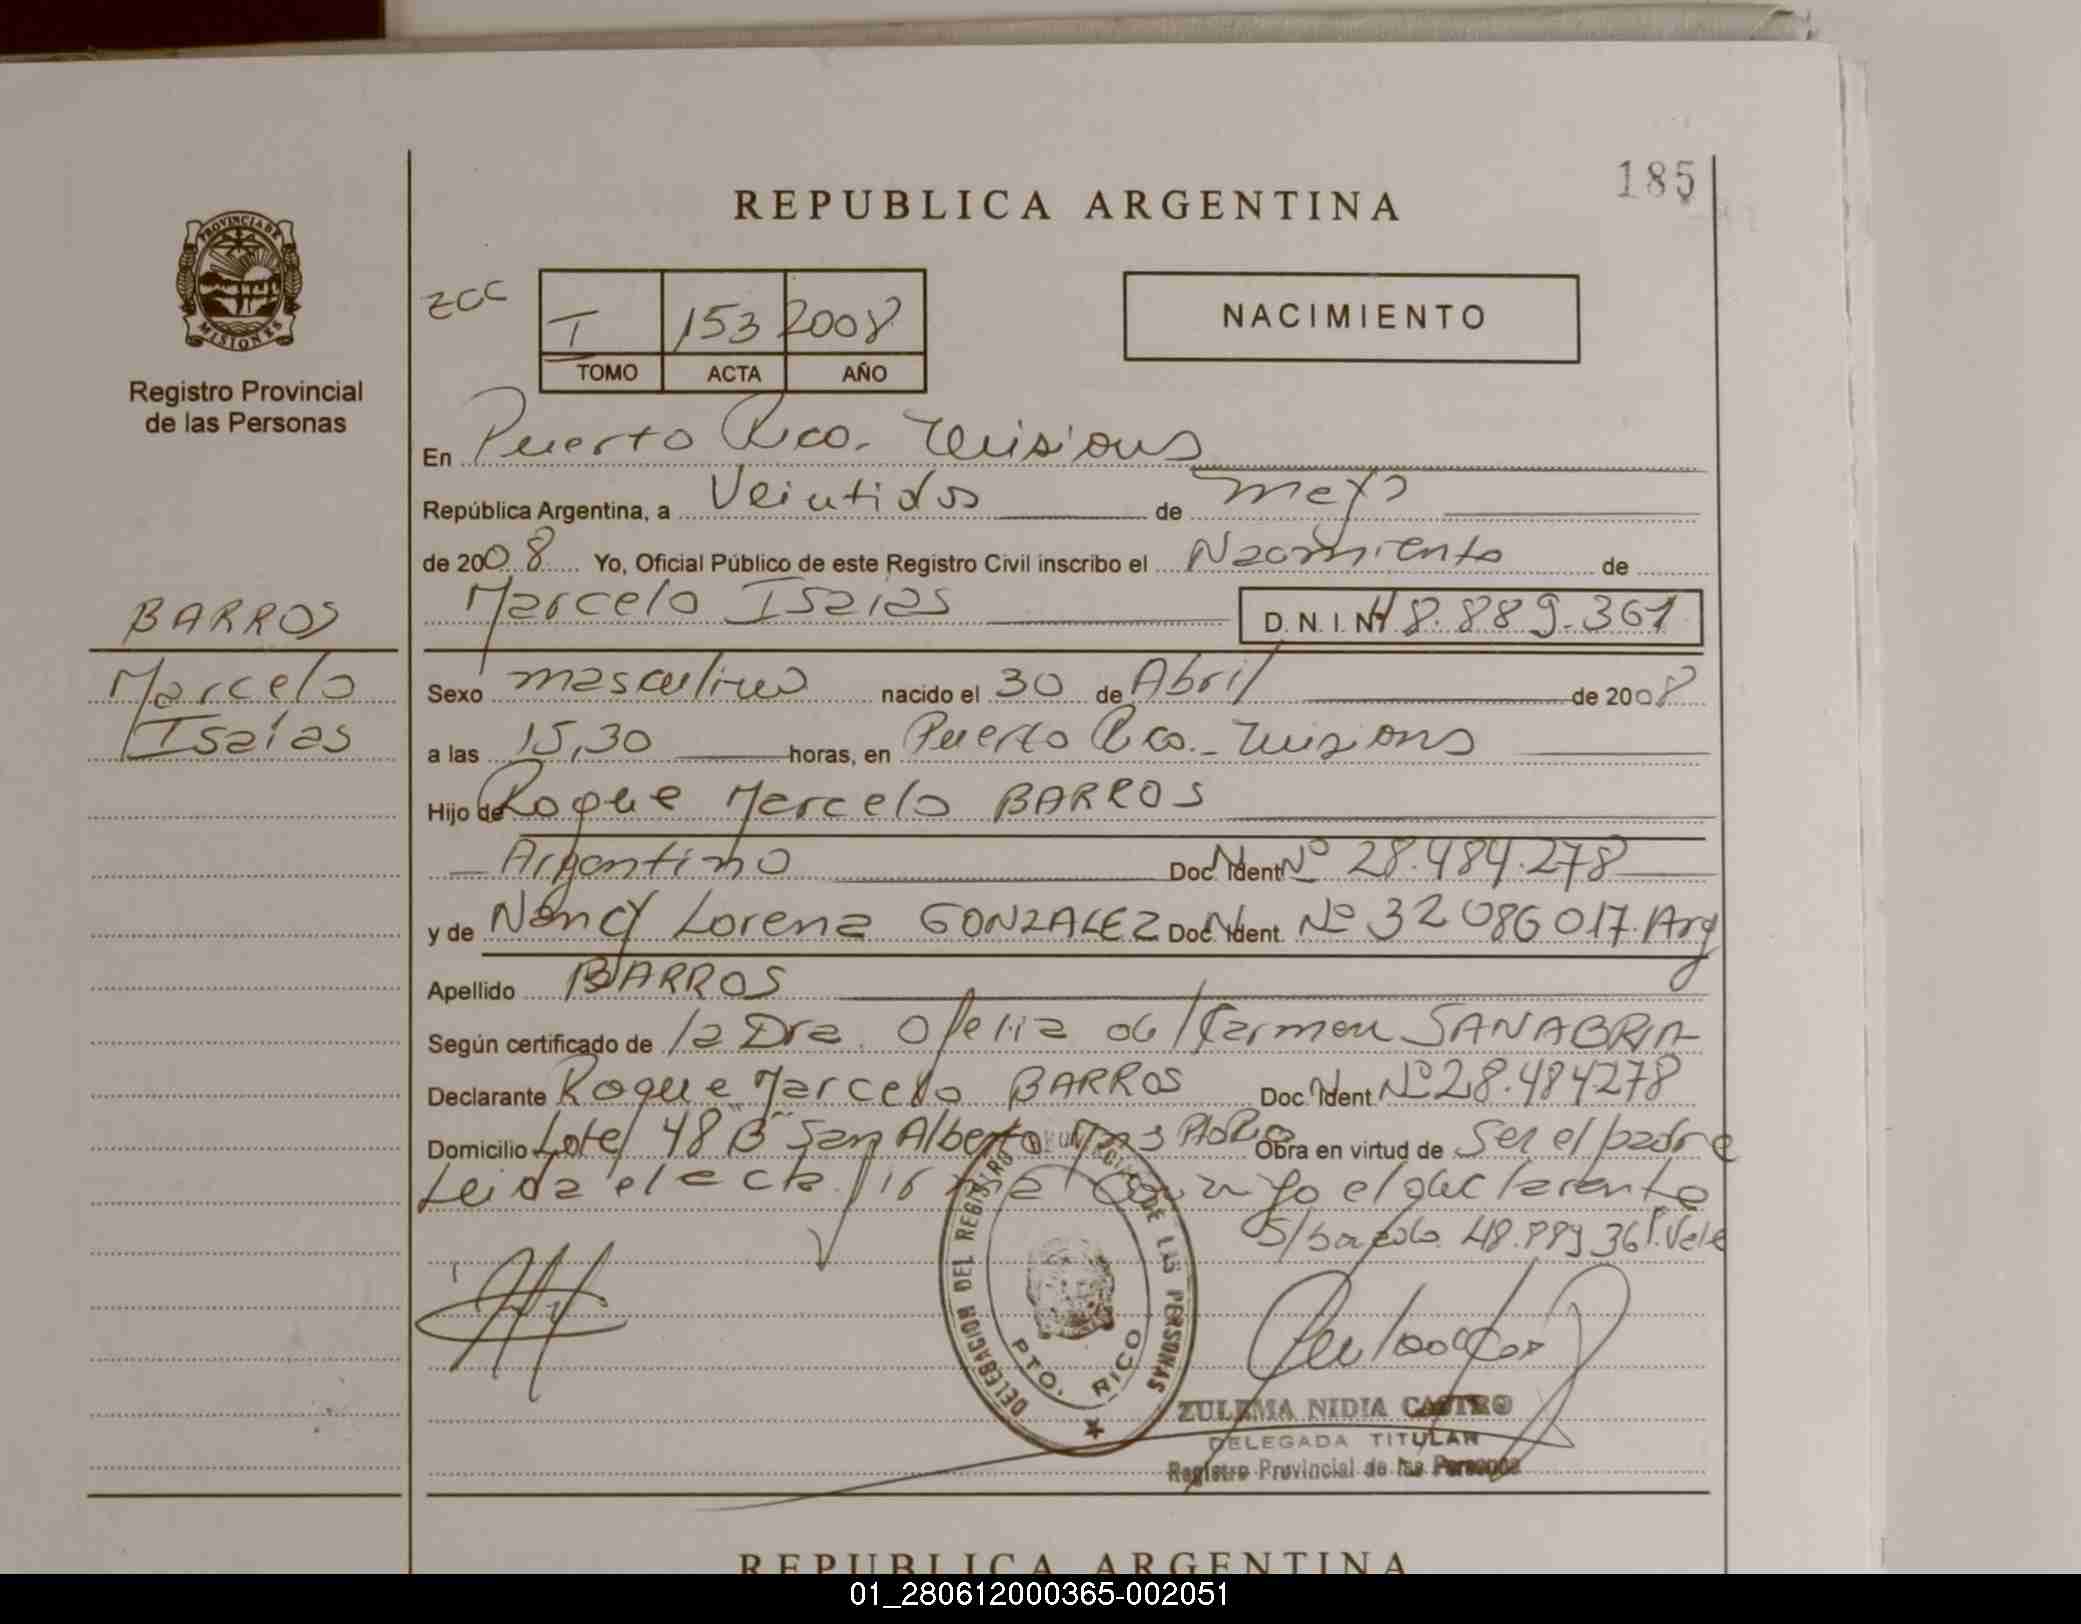 185
REPUBLICA ARGENTINA
PROVINCIA DE
MISIONES
Registro Provincial
de las Personas
ZCC
I 153 2008
TOMO ACTA AÑO
NACIMIENTO
En Puerto Rico. Misiones
República Argentina, a Veintidos de mayo
de 2008 Yo, Oficial Público de este Registro Civil inscribo el Nacimiento de
Marcelo Isaias D.N.I.Nº 48.889.361
BARROS
Marcelo
Isaías
Sexo masculino nacido el 30 de Abril de 2008
a las 15,30 horas, en Puerto Rico.- Misiones
Hijo de Roque Marcelo BARROS
Argentino Doc. Ident. Nº 28.484.278
y de Nancy Lorena GONZALEZ Doc. Ident. Nº 32 086 017. Arg
Apellido BARROS
Según certificado de la Dra. Ofelia del Carmen SANABRIA
Declarante Roque Marcelo BARROS Doc. Ident. Nº 28.484278
Domicilio Lote 48 "B" San Alberto Mns Pto Rico Obra en virtud de Ser el padre
Leida el acta firma conmigo el declarante
S/ 48.889 361. Vale
DELEGACION DEL REGISTRO DE LAS PERSONAS
PTO. RICO
ZULEMA NIDIA CASTRO
DELEGADA TITULAR
Registro Provincial de las Personas
REPUBLICA ARGENTINA
01_280612000365-002051